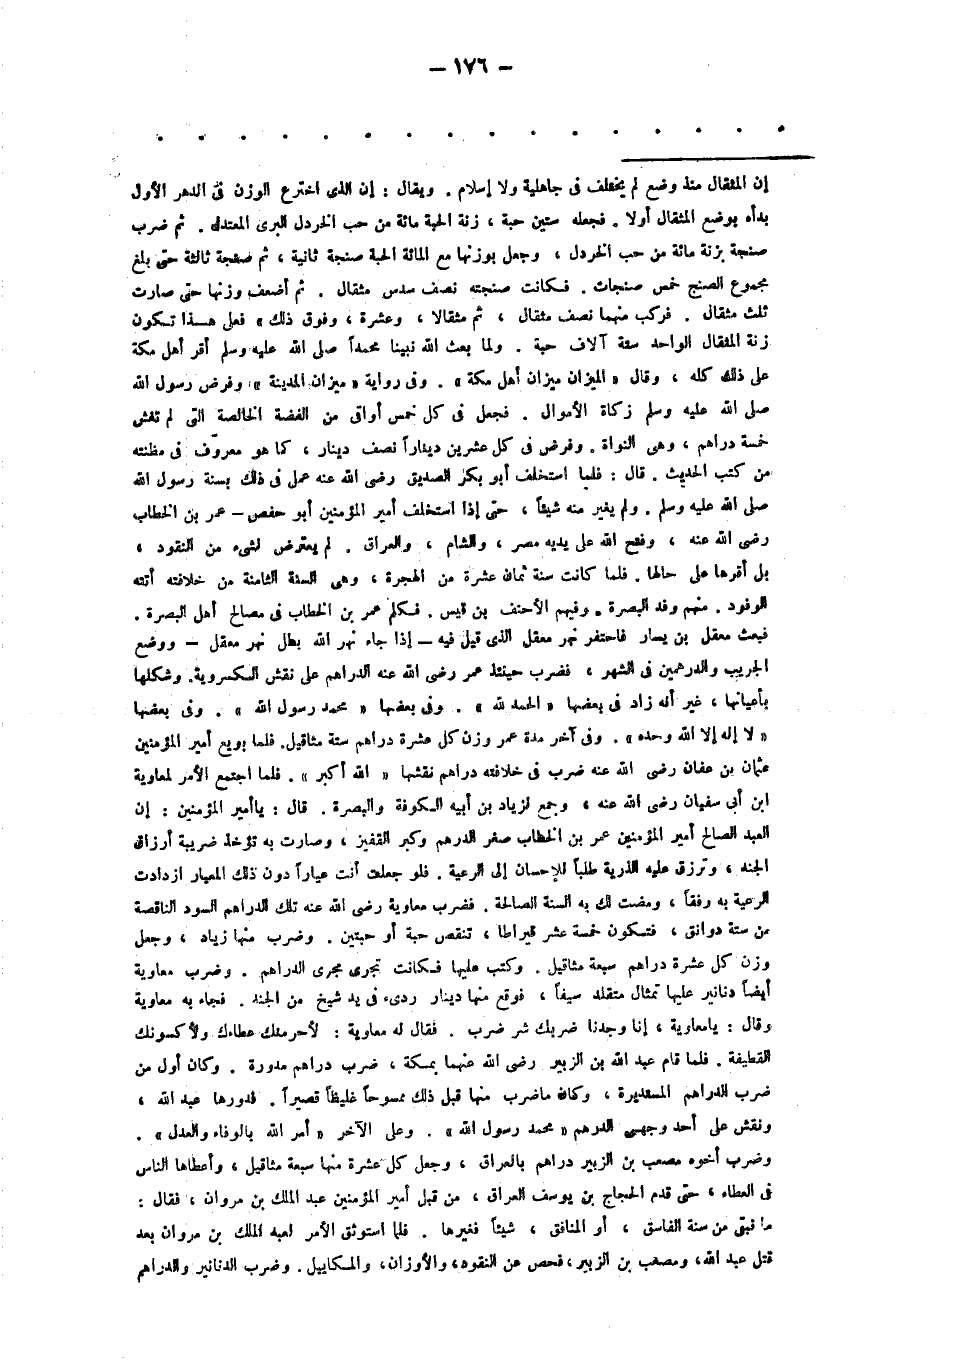 — ١٧٦ —
. . . . . . . . . . . . . . . .
إن المثقال منذ وضع لم يختلف فى جاهلية ولا إسلام . ويقال : إن الذى اخترع الوزن فى الدهر الأول
بدأه بوضع المثقال أولا . فجعله ستين حبة ، زنة الحبة مائة من حب الخردل البرى المعتدل . ثم ضرب
صنجة بزنة مائة من حب الخردل ، وجعل بوزنها مع المائة الحبة صنجة ثانية ، ثم صنجة ثالثة حتى بلغ
مجموع الصنج خمس صنجات . فكانت صنجته نصف سدس مثقال . ثم أضعف وزنها حتى صارت
ثلث مثقال . فركب منهما نصف مثقال ، ثم مثقالا ، وعشرة ، وفوق ذلك » فعلى هذا تكون
زنة المثقال الواحد ستة آلاف حبة . ولما بعث الله نبينا محمداً صلى الله عليه وسلم أقر أهل مكة
على ذلك كله ، وقال « الميزان ميزان أهل مكة » . وفى رواية « ميزان المدينة » وفرض رسول الله
صلى الله عليه وسلم زكاة الأموال . فجعل فى كل خمس أواقى من الفضة الخالصة التى لم تغش
خمسة دراهم ، وهى النواة . وفرض فى كل عشرين ديناراً نصف دينار ، كما هو معروف فى مظنته
من كتب الحديث . قال : فلما استخلف أبو بكر الصديق رضى الله عنه عمل فى ذلك بسنة رسول الله
صلى الله عليه وسلم . ولم يغير منه شيئاً ، حتى إذا استخلف أمير المؤمنين أبو حفص – عمر بن الخطاب
رضى الله عنه ، وفتح الله على يديه مصر ، والشام ، والعراق . لم يعترض لشىء من النقود ،
بل أقرها على حالها . فلما كانت سنة ثمان عشرة من الهجرة ، وهى السنة الثامنة من خلافته أتته
الوفود . منهم وفد البصرة . وفيهم الأحنف بن قيس . فكلم عمر بن الخطاب فى مصالح أهل البصرة .
فبعث معقل بن يسار فاحتفر نهر معقل الذى قيل فيه – إذا جاء نهر الله بطل نهر معقل – ووضع
الجريب والدرهمين فى الشهر ، فضرب حينئذ عمر رضى الله عنه الدراهم على نقش الكسروية. وشكلها
بأعيانها ، غير أنه زاد فى بعضها « الحمد لله » . وفى بعضها « محمد رسول الله » . وفى بعضها
« لا إله إلا الله وحده » . وفى آخر مدة عمر وزن كل عشرة دراهم ستة مثاقيل. فلما بويع أمير المؤمنين
عثمان بن عفان رضى الله عنه ضرب فى خلافته دراهم نقشها « الله أكبر » . فلما اجتمع الأمر لمعاوية
ابن أبى سفيان رضى الله عنه ، وجمع لزياد بن أبيه الكوفة والبصرة . قال : يا أمير المؤمنين : إن
العبد الصالح أمير المؤمنين عمر بن الخطاب صغر الدرهم وكبر القفيز ، وصارت به تؤخذ ضريبة أرزاق
الجند ، وترزق عليه الذرية طلباً للإحسان إلى الرعية . فلو جعلت أنت عياراً دون ذلك المعيار ازدادت
الرعية به رفقاً ، ومضت لك به السنة الصالحة . فضرب معاوية رضى الله عنه تلك الدراهم السود الناقصة
من ستة دوانق ، فتكون خمسة عشر قيراطا ، تنقص حبة أو حبتين . وضرب منها زياد ، وجعل
وزن كل عشرة دراهم سبعة مثاقيل . وكتب عليها فكانت تجرى مجرى الدراهم . وضرب معاوية
أيضاً دنانير عليها تمثال متقلد سيفاً ، فوقع منها دينار ردىء فى يد شيخ من الجند . فجاء به معاوية
وقال : يامعاوية ، إنا وجدنا ضربك شر ضرب . فقال له معاوية : لأحرمنك عطاءك ولأكسونك
القطيفة . فلما قام عبد الله بن الزبير رضى الله عنهما بمكة ، ضرب دراهم مدورة . وكان أول من
ضرب الدراهم المستديرة ، وكان ماضرب منها قبل ذلك ممسوحاً غليظاً قصيراً . فدورها عبد الله ،
ونقش على أحد وجهى الدرهم « محمد رسول الله » . وعلى الآخر « أمر الله بالوفاء والعدل » .
وضرب أخوه مصعب بن الزبير دراهم بالعراق ، وجعل كل عشرة منها سبعة مثاقيل ، وأعطاها الناس
فى العطاء ، حتى قدم الحجاج بن يوسف العراق ، من قبل أمير المؤمنين عبد الملك بن مروان ، فقال :
ما نبقى من سنة الفاسق ، أو المنافق ، شيئاً فغيرها . فلما استوثق الأمر لعبد الملك بن مروان بعد
قتل عبد الله، ومصعب بن الزبير، فحص عن النقود، والأوزان، والمكاييل. وضرب الدنانير والدراهم